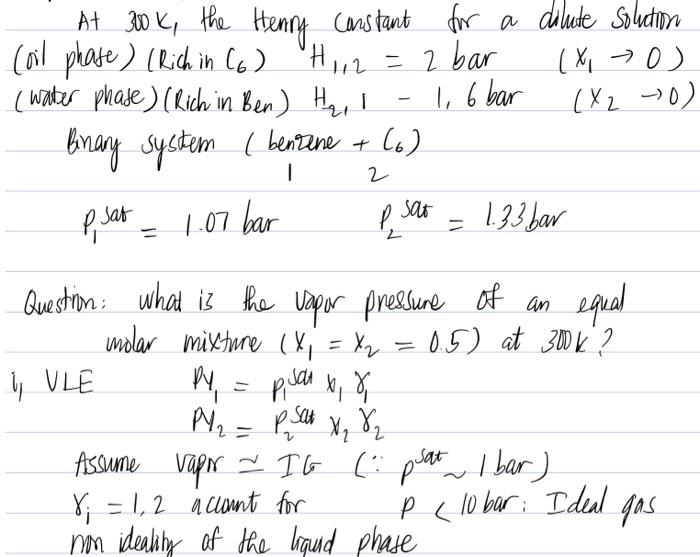 At 300 K, the Henry Constant for a dilute Solution
(oil phase) (Rich in C6) H1,2 = 2 bar (X1 → 0)
(water phase) (Rich in Ben) H2,1 - 1,6 bar (X2 → 0)
Binary system (benzene + C6)
1 2
P1^sat = 1.07 bar P2^sat = 1.33 bar
Question: what is the vapor pressure of an equal
molar mixture (X1 = X2 = 0.5) at 300K?
i, VLE Py1 = P1^sat X1 γ1
Py2 = P2^sat X2 γ2
Assume vapor ≃ IG (∵ P^sat ~ 1 bar)
γi = 1,2 account for P < 10 bar: Ideal gas
non ideality of the liquid phase